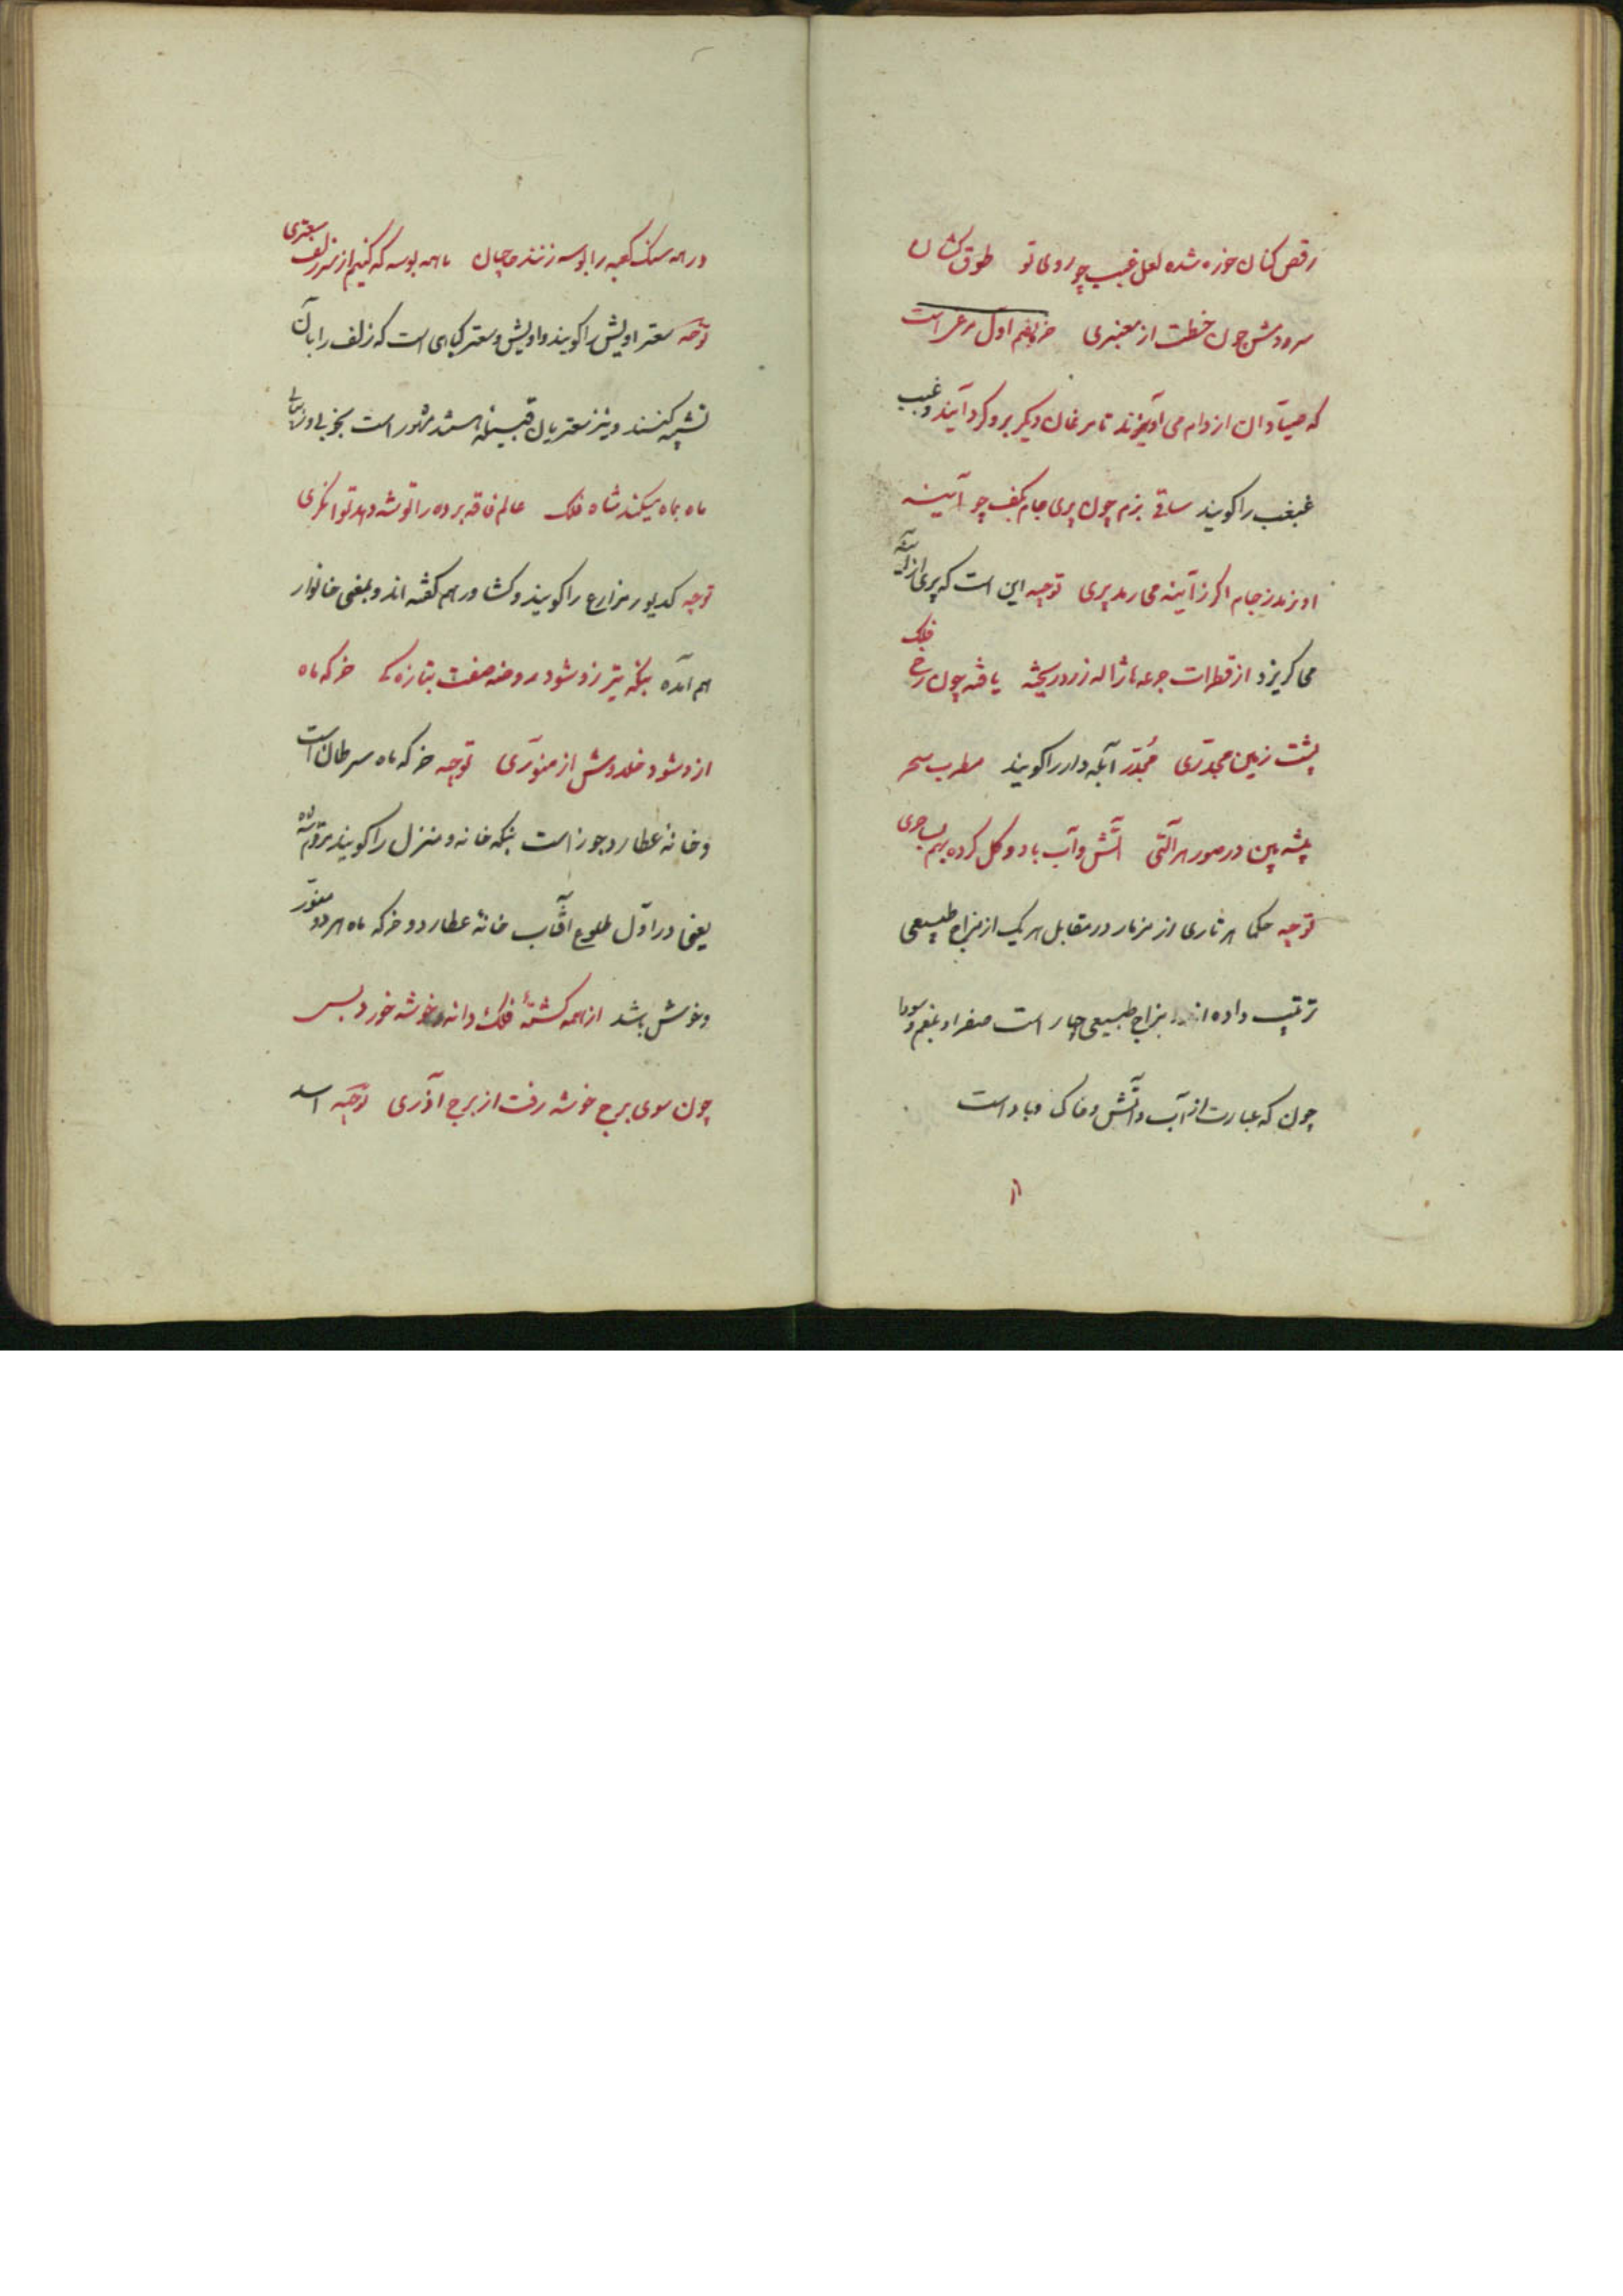 رقص کنان خوره شده لعل غبب چو روی تو طوق کشان
سرودش چون خطت از معنبری اول مرغی است
که صیادان از دام می آویزند تا مرغان دیگر برو گرد آیند و غبب
غبغب را گویند ساقی بزم چون پری جام بکف چو آئینه
او نرمد ز جام اگر ز آینه می رمد پری توجیه این است که پری از آینه
می گریزد از قطرات جرعه ها ژاله زرد ریخته یافته چون رخ فلک
پشت زمین مجدری مُجدّر آبله دار را گویند مطرب سحر
پیشه بین در صور هر آلتی آتش و آب باد و گل کرده بهم بساحری
توجیه حکما هر تاری از مزمار در مقابل هر یک از مزاج طبیعی
ترتیب داده اند مزاج طبیعی چهار است صفرا و بلغم و سودا
چون که عبارت از آب و آتش و خاک و باد است
در همه سنگ کعبه را بوسه زنند حاجیان ما همه بوسه گه کنیم از سر زلف سعتری
توجیه سعتر اویش را گویند و اویش و سعتر گیاهی است که زلف را بآن
تشبیه کنند و نیز سعتریان قبیله هستند مشهور است بخوبی
ماه بماه میکند شاه فلک عالم فاقه برده را توشه دهد توانگری
توجیه کدیور مزارع را گویند و کشاور هم گفته اند و بمعنی خانوار
هم آمده بنگه تیر زو شود روضه صفت بتازگی خرگه ماه
ازو شود خلدوش از منوری توجیه خرگه ماه سرطان است
و خانه عطارد جوز است بنگه خانه و منزل را گویند
یعنی در اول طلوع آفتاب خانهٔ عطارد و خرگه ماه هر دو منور
و خوش باشد از همه کشتهٔ فلک دانه خوشه خورد بس
چون سوی برج خوشه رفت از برج آذری توجیه اسد